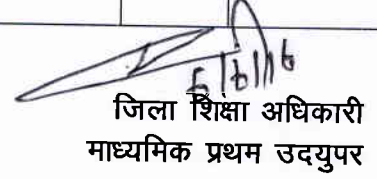 जिला शिक्षा अधिकारी
माध्यमिक प्रथम उदयुपर